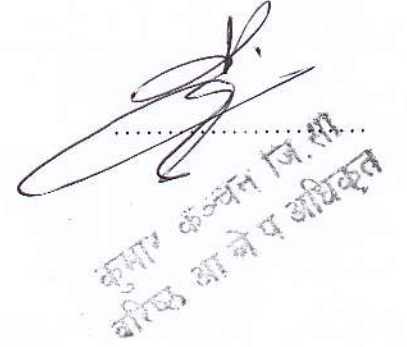 कुमार कञ्चन जि.सी
वरिष्ठ आ ले प अधिकृत